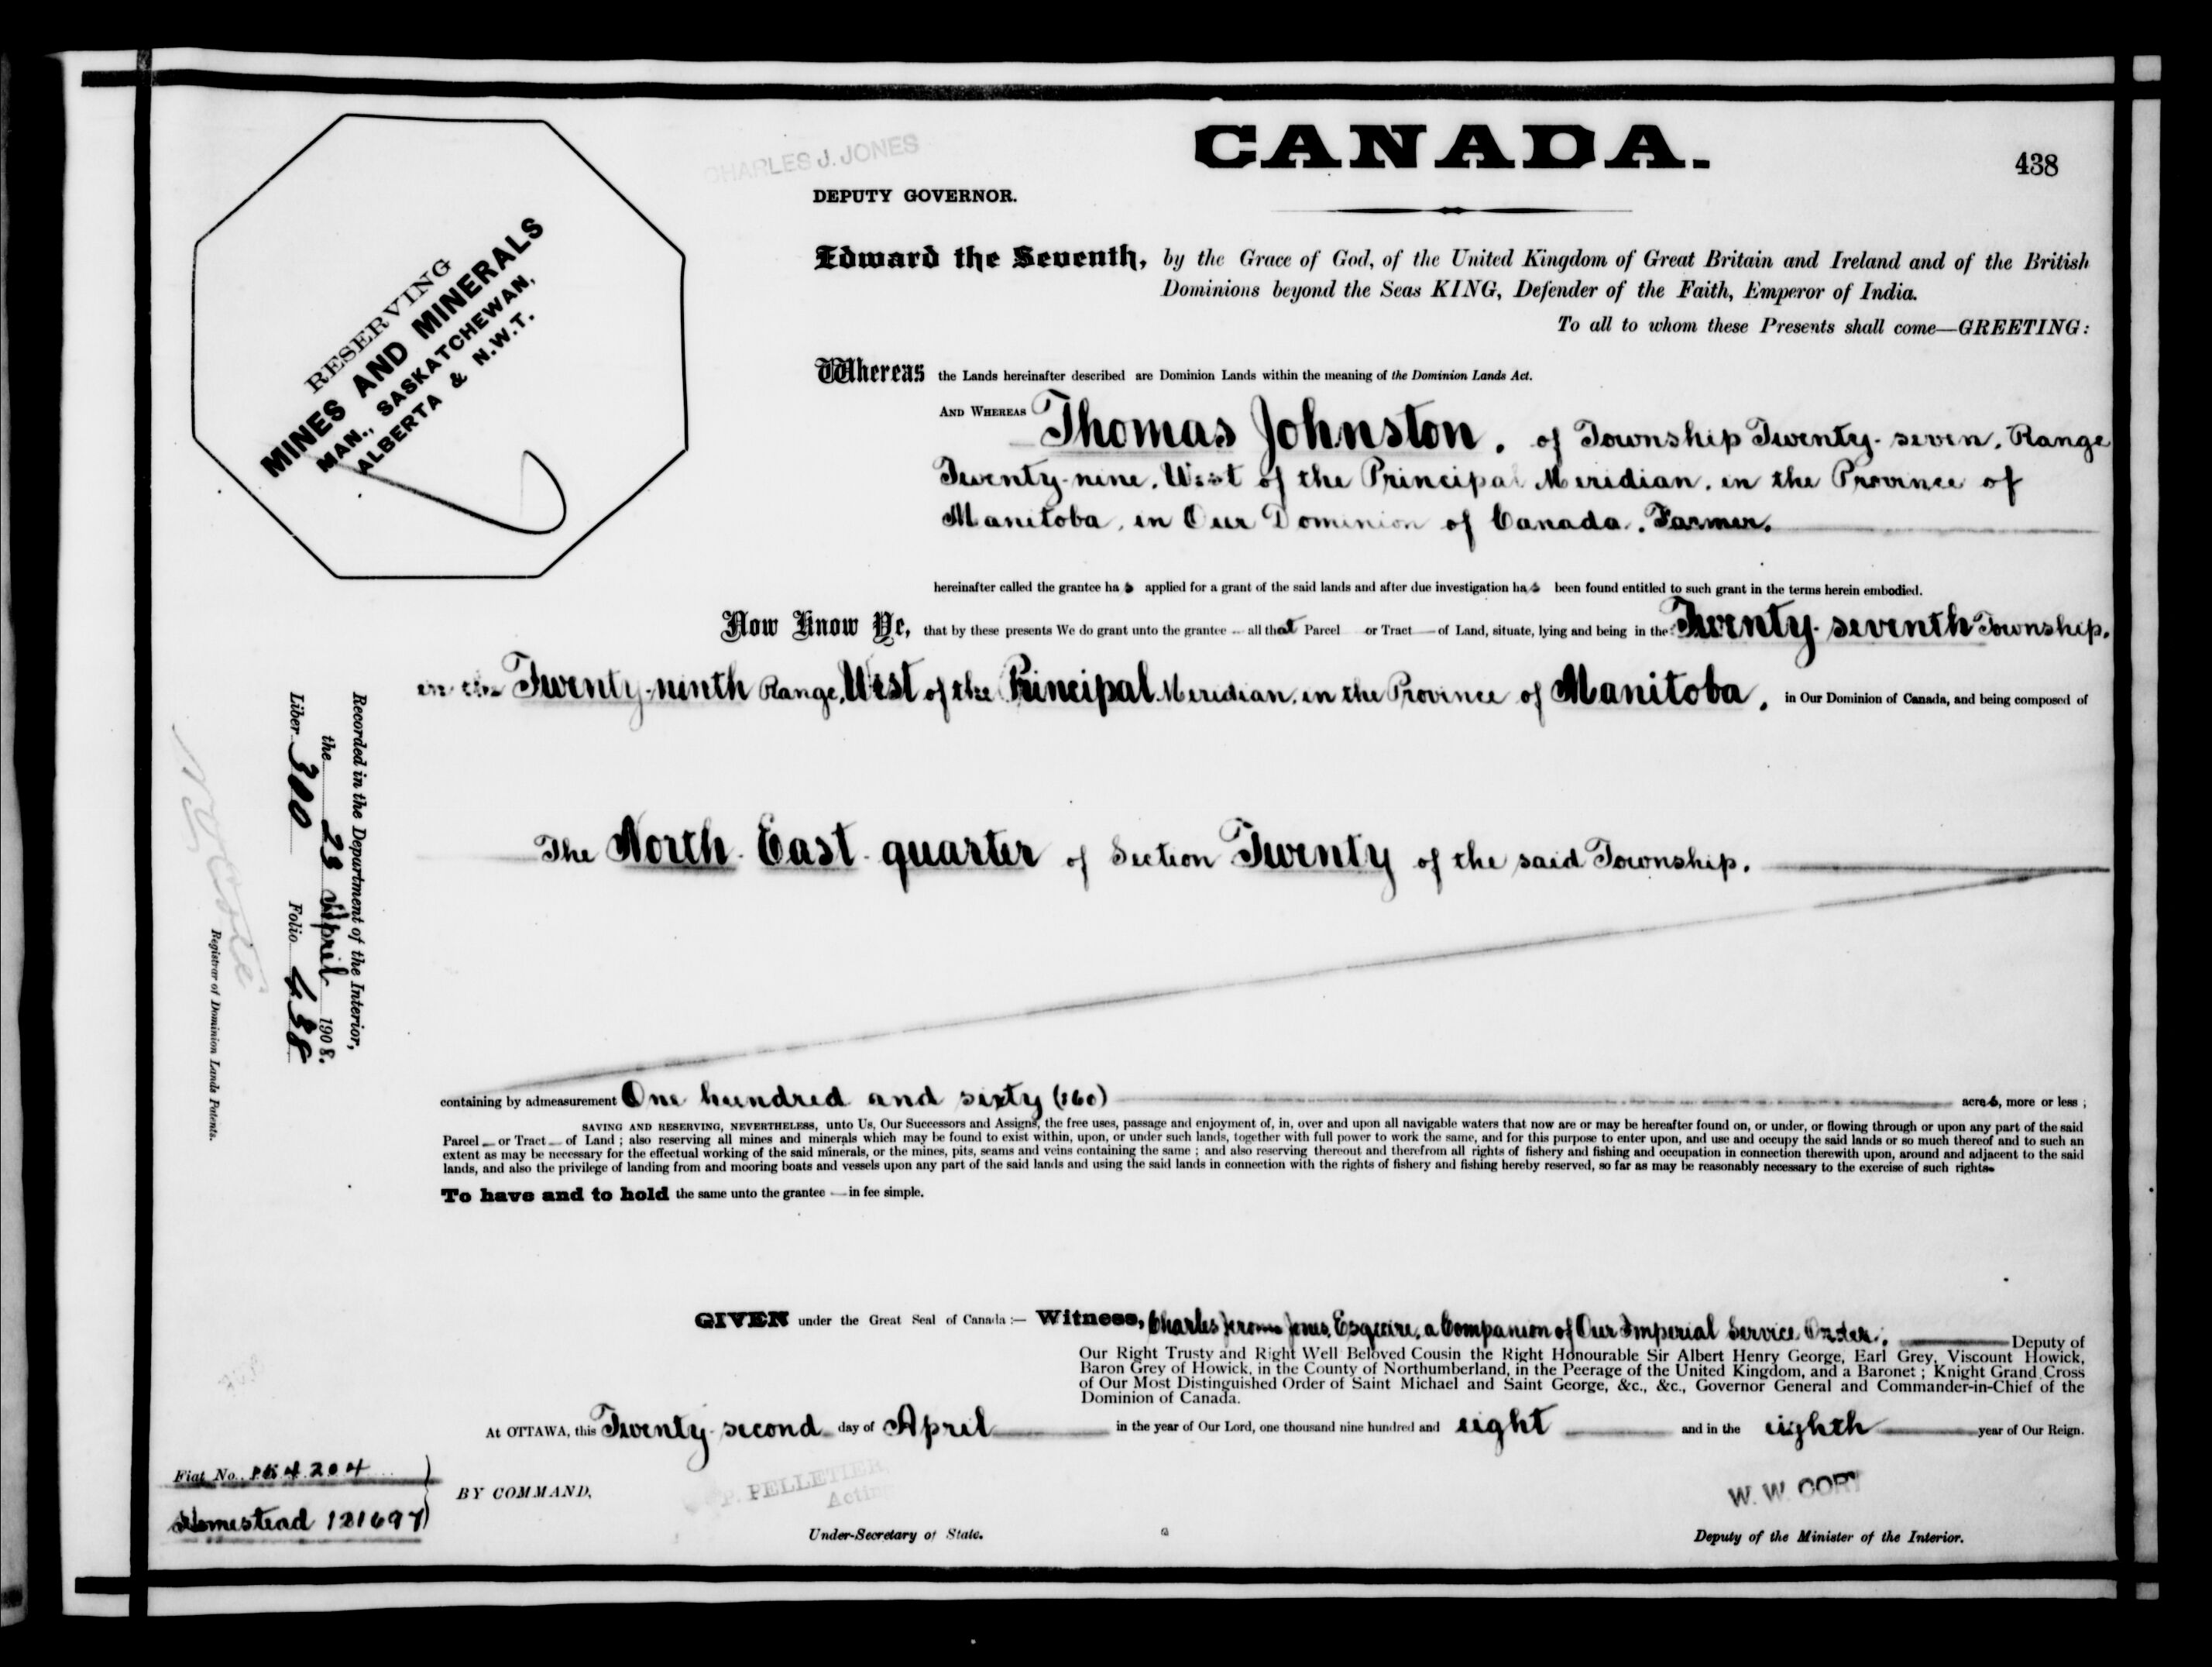 CANADA.
438
CHARLES J. JONES
DEPUTY GOVERNOR.
RESERVING
MINES AND MINERALS
MAN., SASKATCHEWAN,
ALBERTA & N.W.T.
Edward the Seventh, by the Grace of God, of the United Kingdom of Great Britain and Ireland and of the British
Dominions beyond the Seas KING, Defender of the Faith, Emperor of India.
To all to whom these Presents shall come—GREETING:
Whereas the Lands hereinafter described are Dominion Lands within the meaning of the Dominion Lands Act.
AND WHEREAS Thomas Johnston, of Township Twenty-seven, Range
Twenty-nine, West of the Principal Meridian, in the Province of
Manitoba, in Our Dominion of Canada, Farmer,
hereinafter called the grantee has applied for a grant of the said lands and after due investigation has been found entitled to such grant in the terms herein embodied.
Now Know Ye, that by these presents We do grant unto the grantee — all that Parcel or Tract — of Land, situate, lying and being in the Twenty-seventh Township,
in the Twenty-ninth Range, West of the Principal Meridian, in the Province of Manitoba, in Our Dominion of Canada, and being composed of
The North East quarter of Section Twenty of the said Township.
containing by admeasurement One hundred and sixty (160) acres, more or less ;
SAVING AND RESERVING, NEVERTHELESS, unto Us, Our Successors and Assigns, the free uses, passage and enjoyment of, in, over and upon all navigable waters that now are or may be hereafter found on, or under, or flowing through or upon any part of the said
Parcel — or Tract — of Land ; also reserving all mines and minerals which may be found to exist within, upon, or under such lands, together with full power to work the same, and for this purpose to enter upon, and use and occupy the said lands or so much thereof and to such an
extent as may be necessary for the effectual working of the said minerals, or the mines, pits, seams and veins containing the same ; and also reserving thereout and therefrom all rights of fishery and fishing and occupation in connection therewith upon, around and adjacent to the said
lands, and also the privilege of landing from and mooring boats and vessels upon any part of the said lands and using the said lands in connection with the rights of fishery and fishing hereby reserved, so far as may be reasonably necessary to the exercise of such rights.
To have and to hold the same unto the grantee — in fee simple.
GIVEN under the Great Seal of Canada :— Witness, Charles Jerome Jones, Esquire, a Companion of Our Imperial Service Order, Deputy of
Our Right Trusty and Right Well Beloved Cousin the Right Honourable Sir Albert Henry George, Earl Grey, Viscount Howick,
Baron Grey of Howick, in the County of Northumberland, in the Peerage of the United Kingdom, and a Baronet ; Knight Grand Cross
of Our Most Distinguished Order of Saint Michael and Saint George, &c., &c., Governor General and Commander-in-Chief of the
Dominion of Canada.
At OTTAWA, this Twenty-second day of April in the year of Our Lord, one thousand nine hundred and eight and in the eighth year of Our Reign.
BY COMMAND,
P. PELLETIER,
Acting
Under-Secretary of State.
W. W. CORY
Deputy of the Minister of the Interior.
Recorded in the Department of the Interior,
the 28 April 1908.
Liber 300 Folio 438
Registrar of Dominion Lands Patents.
Fiat No. 204
Homestead 121697